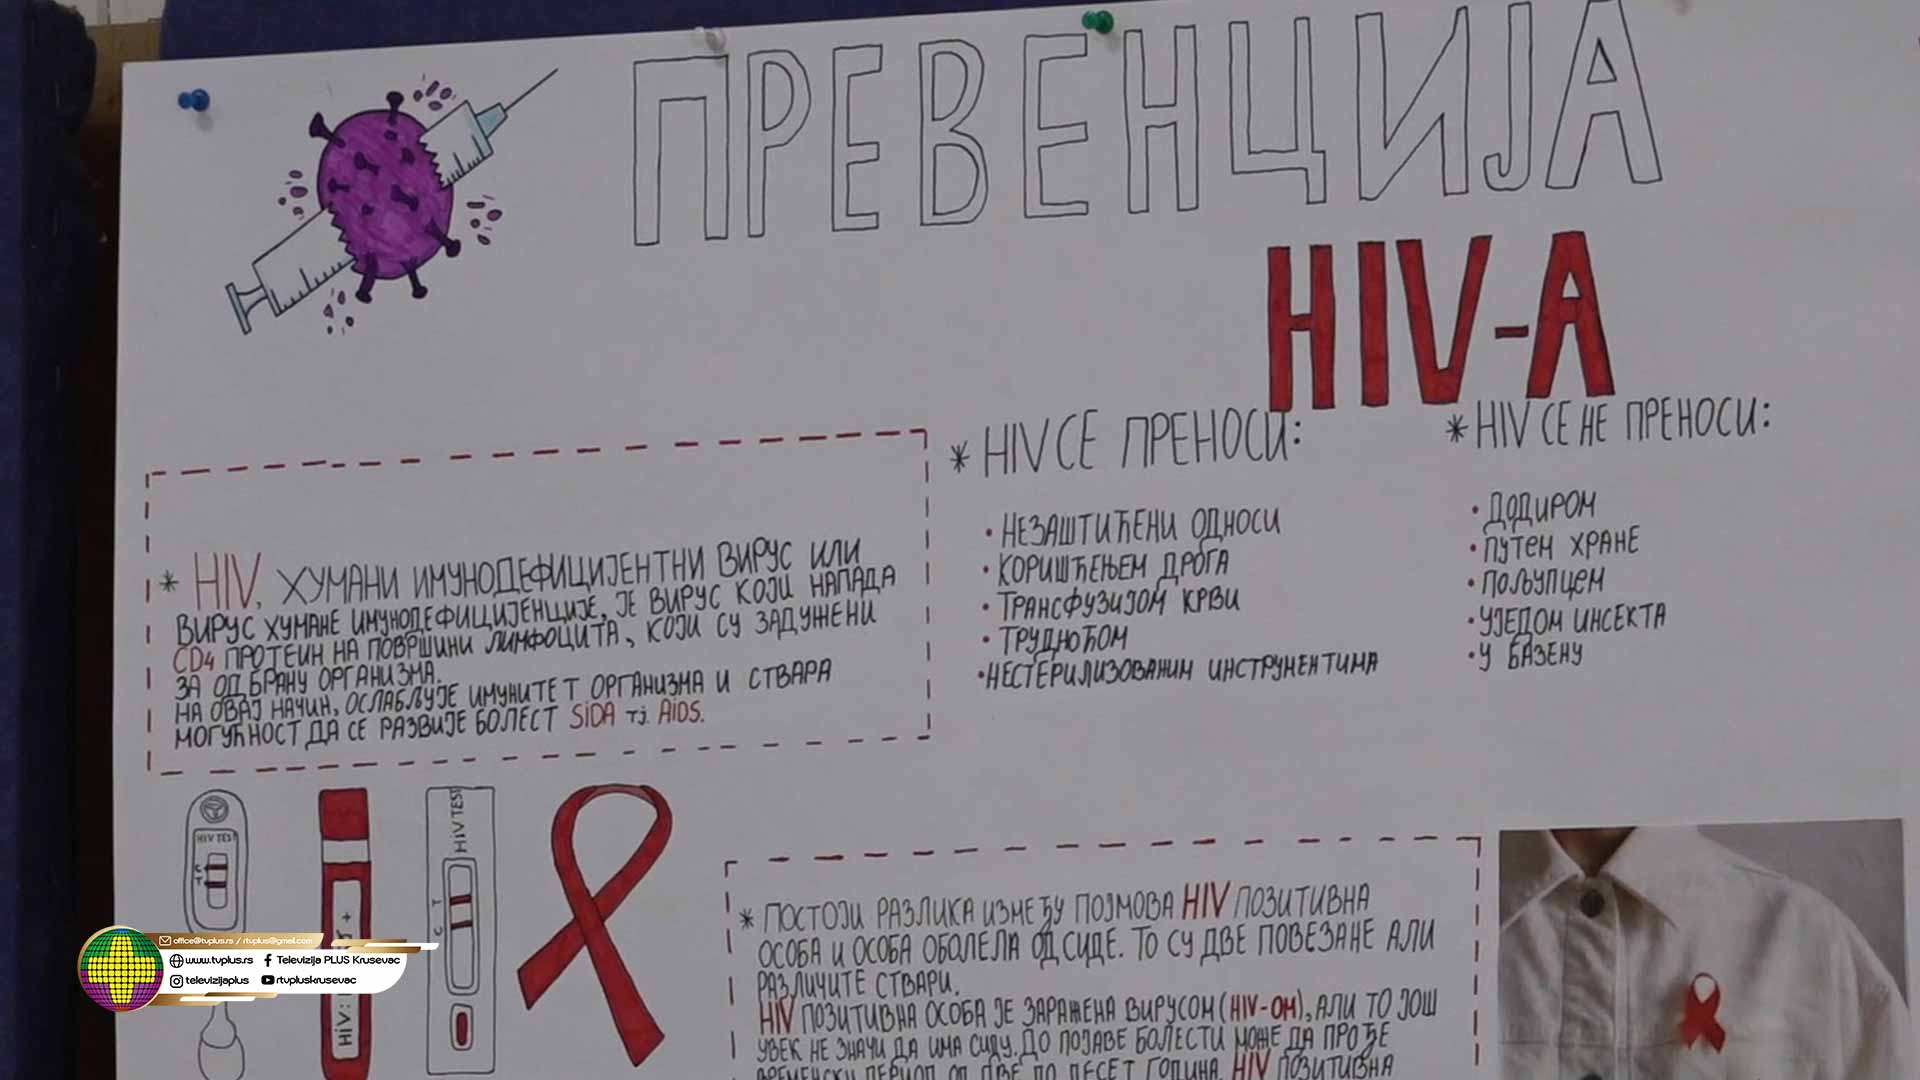 ПРЕВЕНЦИЈА
HIV-А
* HIV СЕ ПРЕНОСИ:
• НЕЗАШТИЋЕНИ ОДНОСИ
• КОРИШЋЕЊЕМ ДРОГА
• ТРАНСФУЗИЈОМ КРВИ
• ТРУДНОЋОМ
• НЕСТЕРИЛИЗОВАНИМ ИНСТРУМЕНТИМА
* HIV СЕ НЕ ПРЕНОСИ:
• ДОДИРОМ
• ПУТЕМ ХРАНЕ
• ПОЉУПЦЕМ
• УЈЕДОМ ИНСЕКТА
• У БАЗЕНУ
* HIV, ХУМАНИ ИМУНОДЕФИЦИЈЕНТНИ ВИРУС ИЛИ
ВИРУС ХУМАНЕ ИМУНОДЕФИЦИЈЕНЦИЈЕ, ЈЕ ВИРУС КОЈИ НАПАДА
CD4 ПРОТЕИН НА ПОВРШИНИ ЛИМФОЦИТА, КОЈИ СУ ЗАДУЖЕНИ
ЗА ОДБРАНУ ОРГАНИЗМА.
НА ОВАЈ НАЧИН, ОСЛАБЉУЈЕ ИМУНИТЕТ ОРГАНИЗМА И СТВАРА
МОГУЋНОСТ ДА СЕ РАЗВИЈЕ БОЛЕСТ SiDA тј. AiDS.
HIV TEST
C
T
HiV:
+
HiV TEST
C T
* ПОСТОЈИ РАЗЛИКА ИЗМЕЂУ ПОЈМОВА HIV ПОЗИТИВНА
ОСОБА И ОСОБА ОБОЛЕЛА ОД СИДЕ. ТО СУ ДВЕ ПОВЕЗАНЕ АЛИ
РАЗЛИЧИТЕ СТВАРИ.
HIV ПОЗИТИВНА ОСОБА ЈЕ ЗАРАЖЕНА ВИРУСОМ (HIV-ОМ), АЛИ ТО ЈОШ
УВЕК НЕ ЗНАЧИ ДА ИМА СИДУ. ДО ПОЈАВЕ БОЛЕСТИ МОЖЕ ДА ПРОЂЕ
ВРЕМЕНСКИ ПЕРИОД ОД ДВЕ ДО ДЕСЕТ ГОДИНА. HIV ПОЗИТИВНА
office@tvplus.rs / rtvplus@gmail.com
www.tvplus.rs Televizija PLUS Krusevac
televizijaplus rtvpluskrusevac